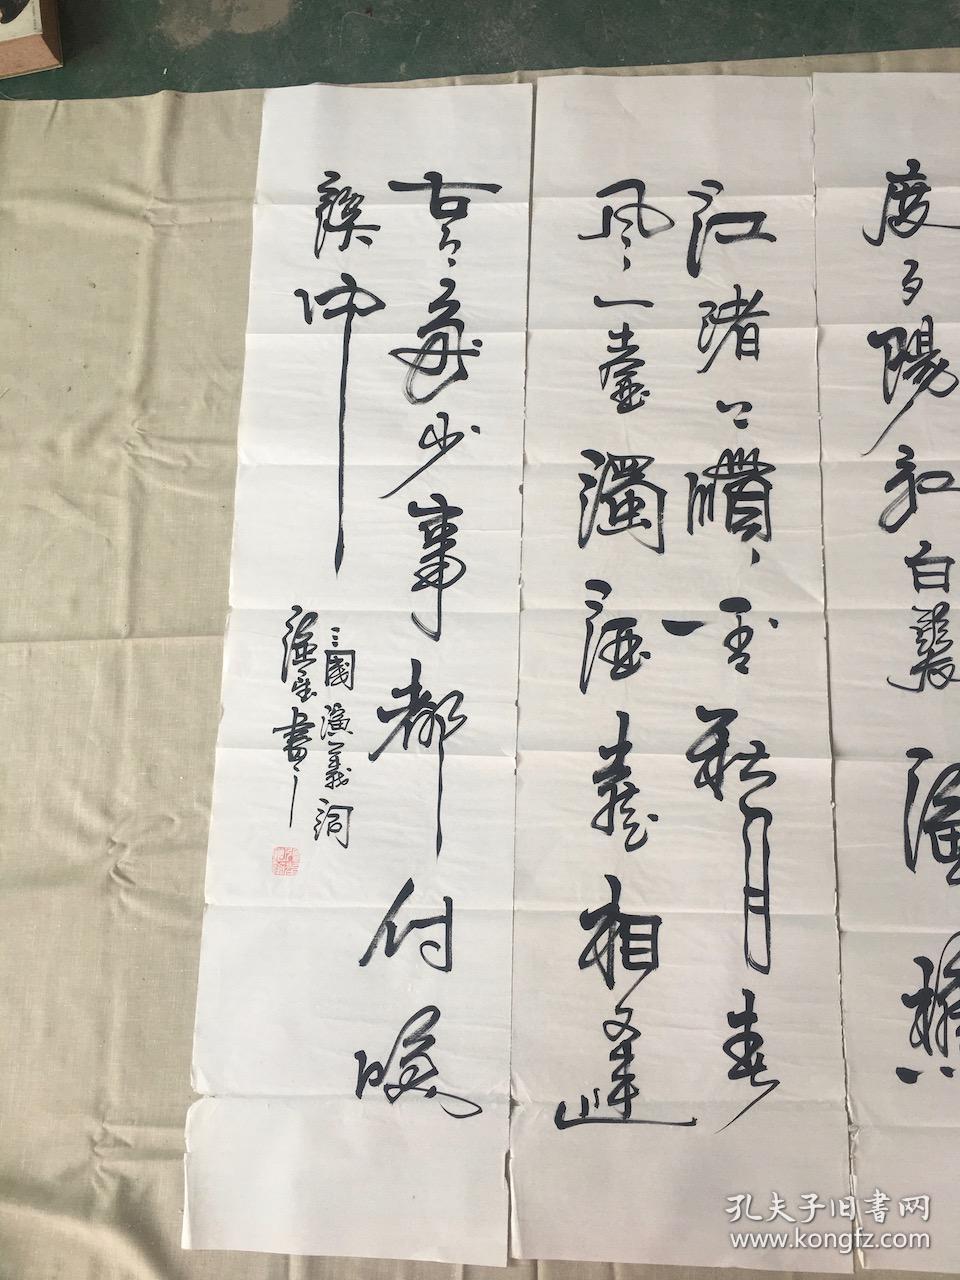 度夕陽紅白髮漁樵
江渚上慣、看秋月春
風、一壺濁酒喜相逢
古今多少事都付
談中
三國演義詞
書
孔夫子旧书网
www.kongfz.com